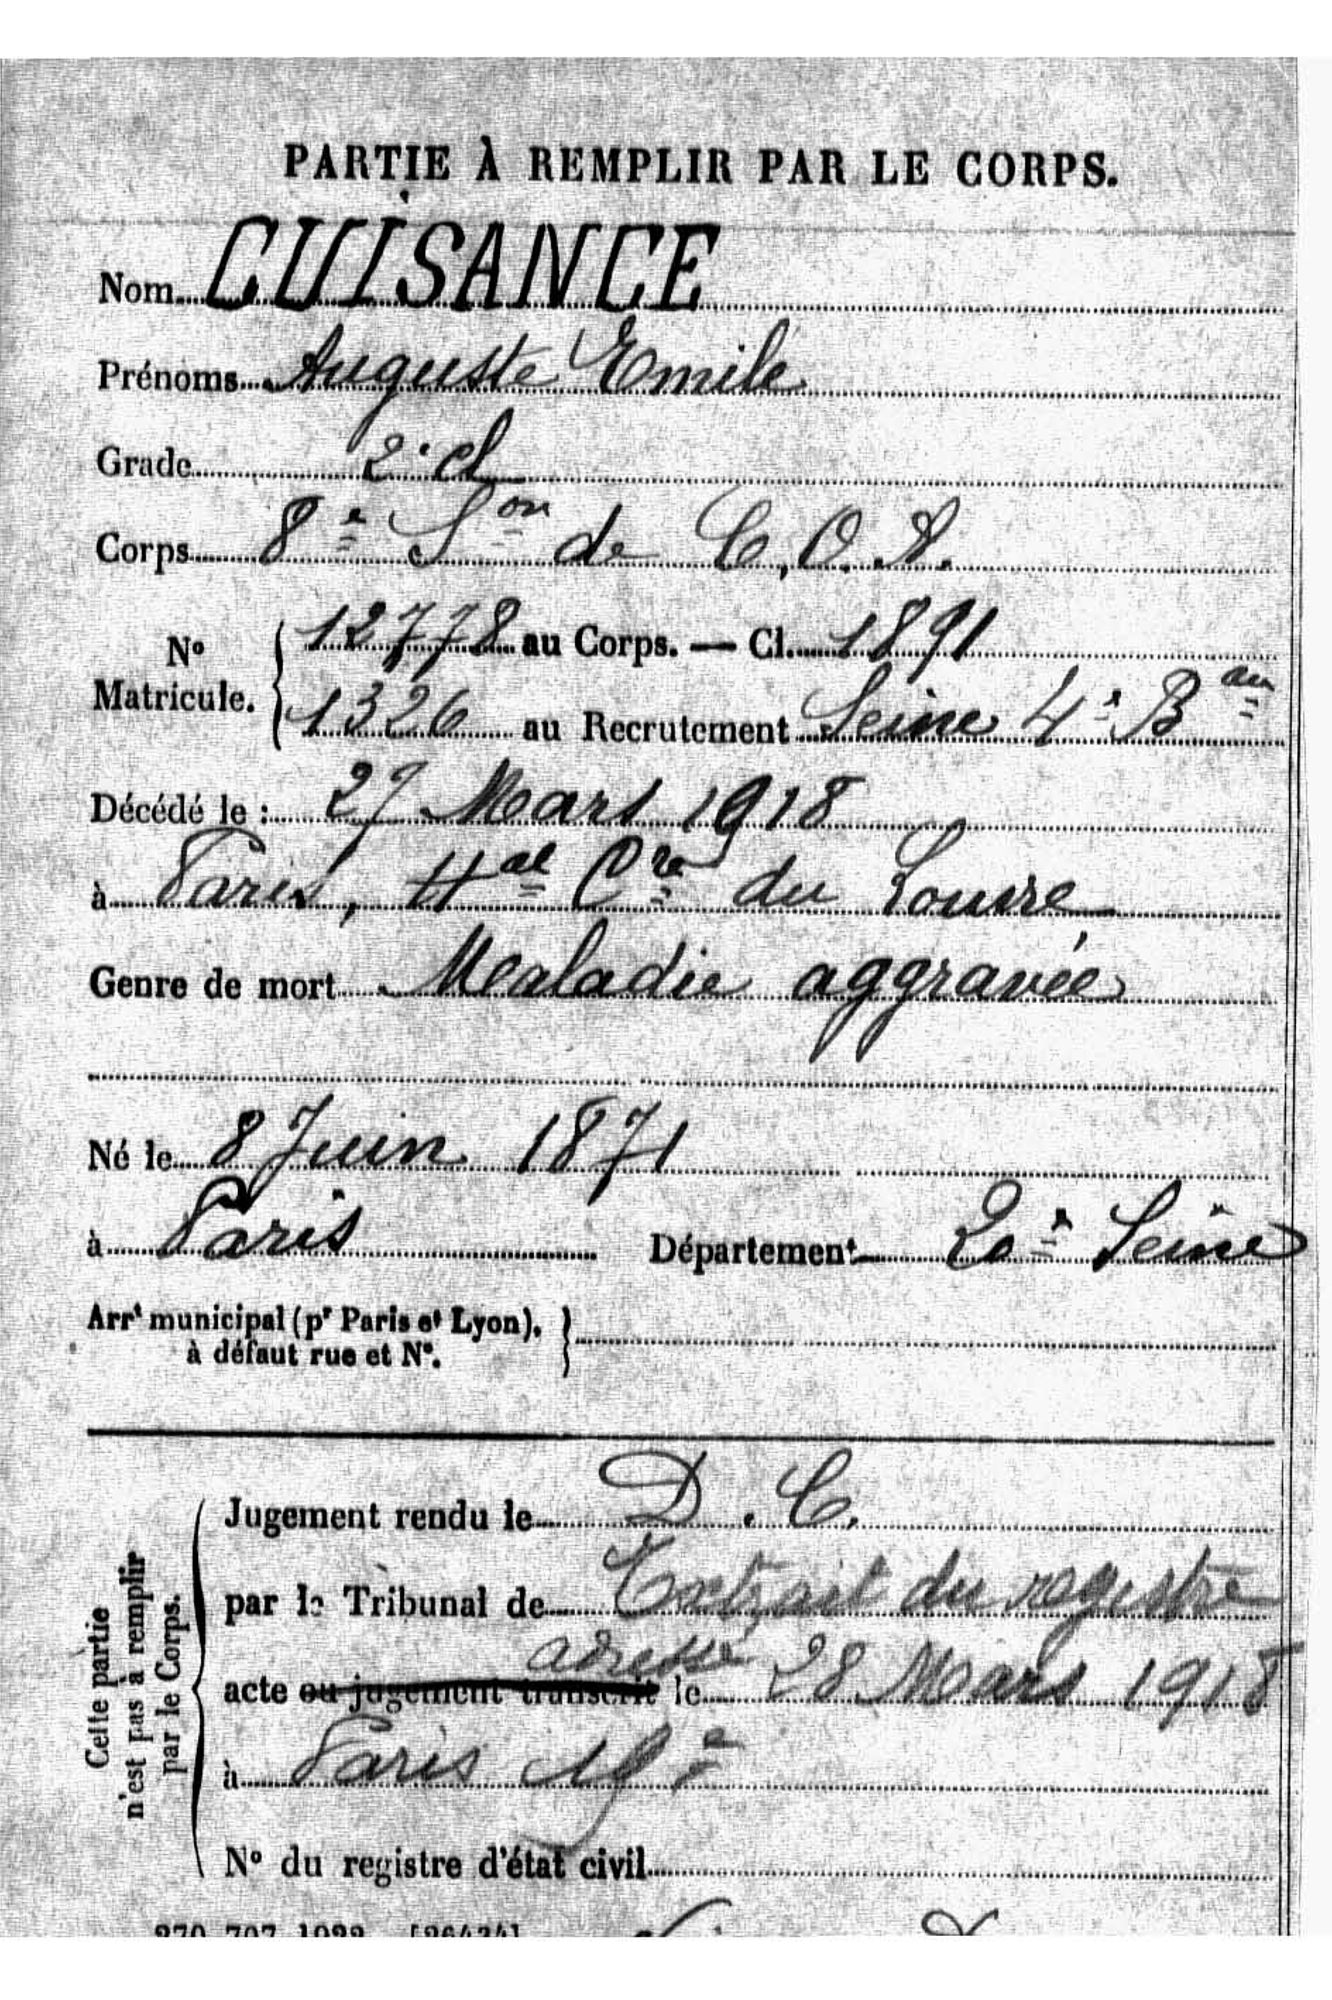 PARTIE À REMPLIR PAR LE CORPS.
Nom CUISANCE
Prénoms Auguste Emile
Grade 2e cl
Corps 8e Son de C.O.A.
No Matricule. 12778 au Corps. — Cl. 1891
1326 au Recrutement Seine 4e Bau
Décédé le : 27 Mars 1918
à Paris, Hal Cre du Louvre
Genre de mort Maladie aggravée
Né le 8 Juin 1871
à Paris Département 20e Seine
Arrt municipal (pr Paris et Lyon),
à défaut rue et No.
Cette partie
n'est pas à remplir
par le Corps.
Jugement rendu le D.C.
par le Tribunal de Extrait du registre
adressé
acte ou jugement transcrit le 28 Mars 1918
à Paris 19e
No du registre d'état civil
270-707-1922. [26434]